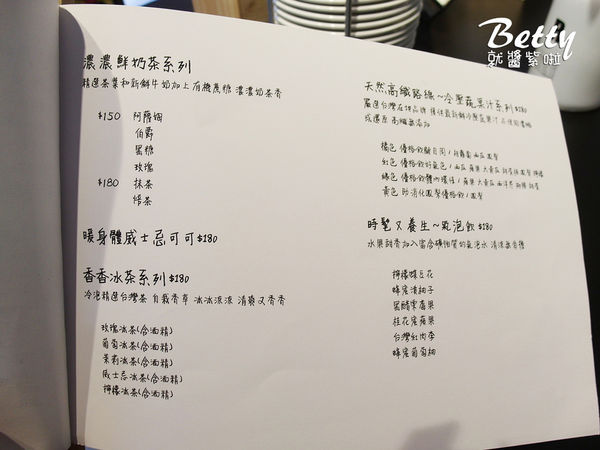 Betty
就醬紫啦
濃濃鮮奶茶系列
精選茶葉和新鮮牛奶加上有機蔗糖 濃濃奶茶香
$150 阿薩姆
伯爵
黑糖
玫瑰
$180 抹茶
焙茶
暖身體威士忌可可$180
香香冰茶系列$180
冷泡精選台灣茶 自栽香草 冰冰涼涼 清爽又香香
玫瑰冰茶(含酒精)
葡萄冰茶(含酒精)
茉莉冰茶(含酒精)
威士忌冰茶(含酒精)
檸檬冰茶(含酒精)
天然高纖路線~冷壓蔬果汁系列$180
嚴選台灣在地品牌
成還原 高纖無添加
橘色 優格飲
紅色 優格飲好氣色
綠色 優格飲體內環保
黃色 助消化鳳梨優格飲
時髦又養生~氣泡飲$180
水果甜香加入富含礦物質的氣泡水 清涼無負擔
檸檬蝶豆花
蜂蜜清柚子
黑醋栗蘋果
桂花蜜蘋果
台灣紅肉李
蜂蜜葡萄柚